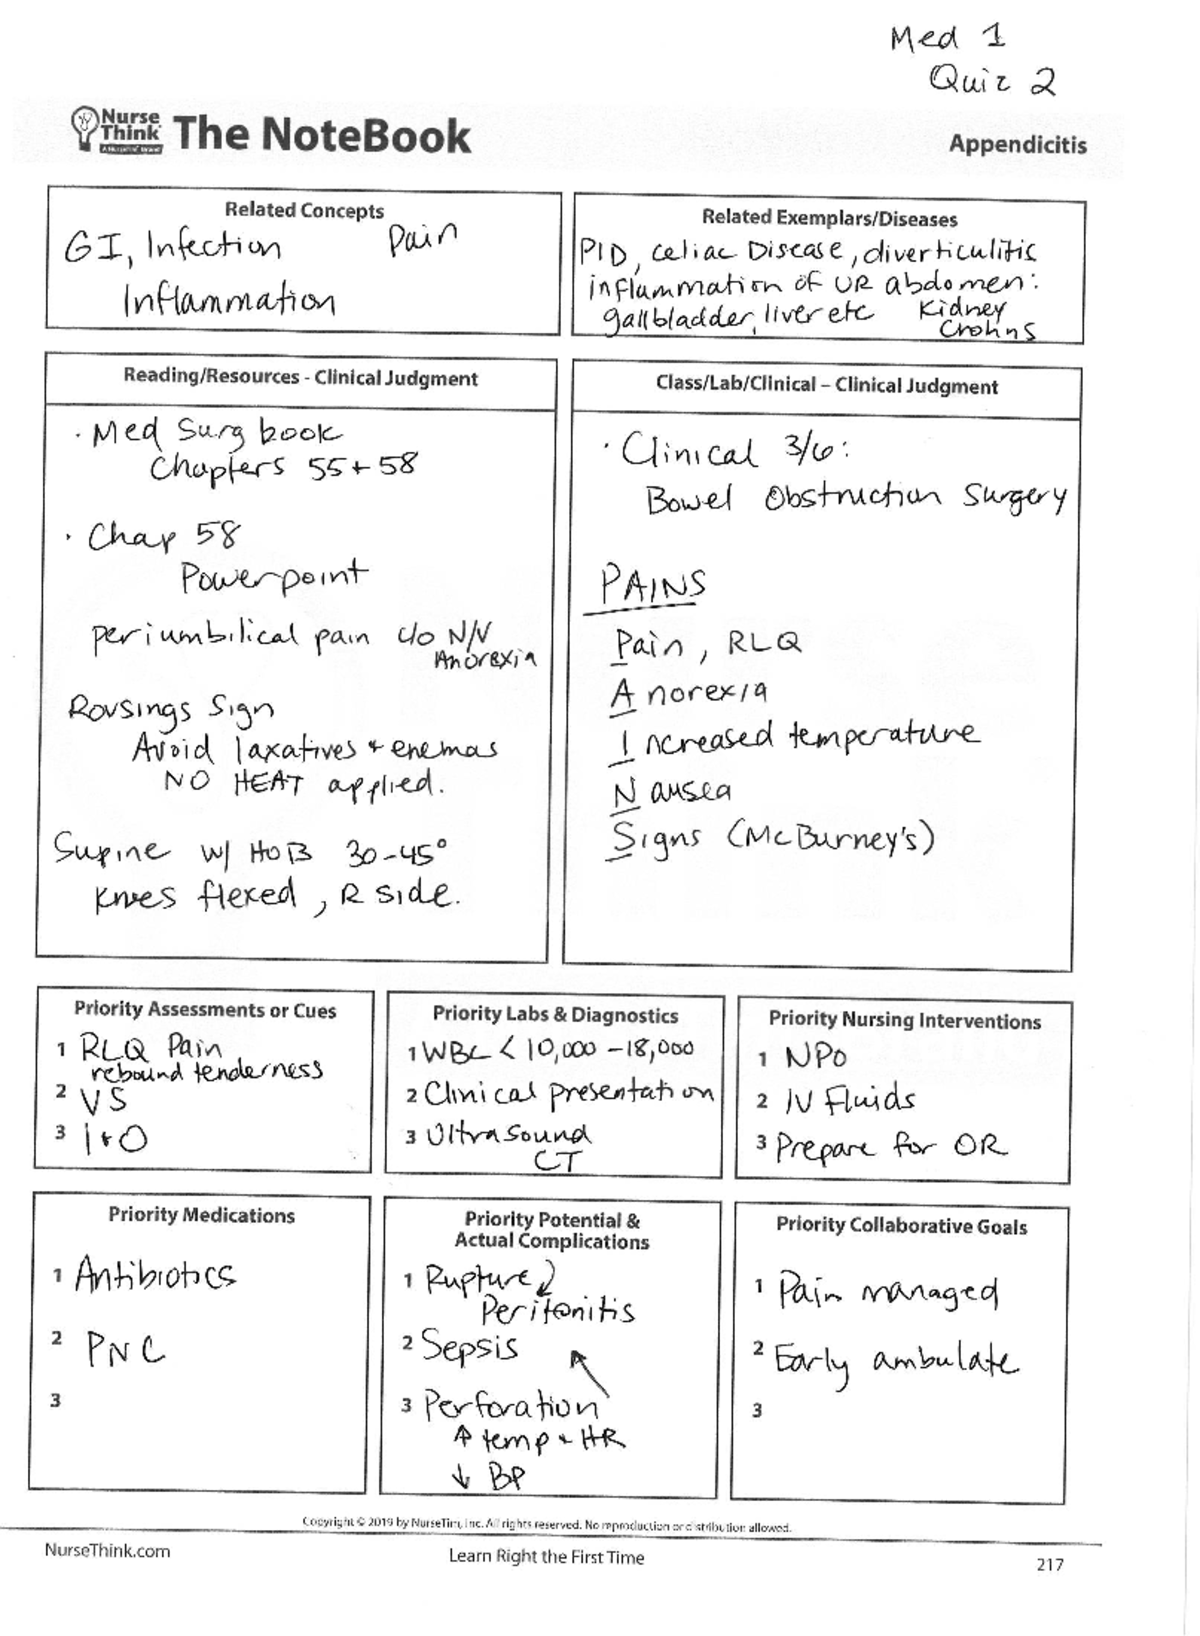 Med 1
Quiz 2
Nurse Think The NoteBook
Appendicitis
Related Concepts
GI, Infection Pain
Inflammation
Related Exemplars/Diseases
PID, celiac Disease, diverticulitis
inflammation of UR abdomen:
gallbladder, liver etc Kidney
Crohns
Reading/Resources - Clinical Judgment
· Med Surg book
Chapters 55 + 58
· Chap 58
Powerpoint
periumbilical pain c/o N/V
Anorexia
Rovsings Sign
Avoid laxatives + enemas
NO HEAT applied.
Supine w/ HOB 30-45°
Knees flexed, R side.
Class/Lab/Clinical – Clinical Judgment
· Clinical 3/6:
Bowel Obstruction Surgery
PAINS
Pain, RLQ
Anorexia
Increased temperature
Nausea
Signs (McBurney's)
Priority Assessments or Cues
1 RLQ Pain
rebound tenderness
2 VS
3 I + O
Priority Labs & Diagnostics
1 WBC < 10,000 - 18,000
2 Clinical presentation
3 Ultrasound
CT
Priority Nursing Interventions
1 NPO
2 IV Fluids
3 Prepare for OR
Priority Medications
1 Antibiotics
2 PNC
3
Priority Potential &
Actual Complications
1 Rupture
Peritonitis
2 Sepsis
3 Perforation
↑ temp + HR
↓ BP
Priority Collaborative Goals
1 Pain managed
2 Early ambulate
3
Copyright © 2019 by NurseTim, Inc. All rights reserved. No reproduction or distribution allowed.
NurseThink.com
Learn Right the First Time
217